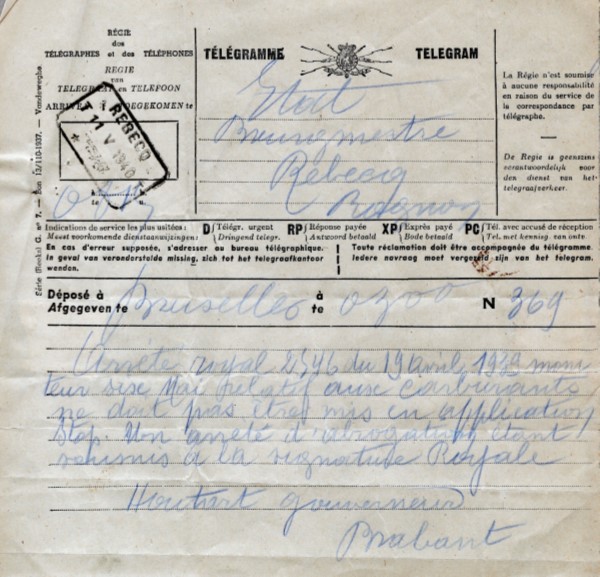 RÉGIE
des
TÉLÉGRAPHES et des TÉLÉPHONES
REGIE
van
TELEGRAAF en TELEFOON
ARRIVÉ à TOEGEKOMEN te
REBECQ
11 V 1940
TÉLÉGRAMME TELEGRAM
Etat
Bourgmestre
Rebecq
Rognon
La Régie n'est soumise
à aucune responsabilité
en raison du service de
la correspondance par
télégraphe.
De Regie is geenszins
verantwoordelijk voor
den dienst van het
telegraafverkeer.
Série (Reeks) G. n° 7. — Bon 13/110-1937. — Vandeweghe.
Indications de service les plus usitées :
Meest voorkomende dienstaanwijzingen:
D Télégr. urgent
Dringend telegr.
RP Réponse payée
Antwoord betaald
XP Exprès payé
Bode betaald
PC Tél. avec accusé de réception
Tel. met kennisg. van ontv.
En cas d'erreur supposée, s'adresser au bureau télégraphique.
In geval van veronderstelde missing, zich tot het telegraafkantoor
wenden.
Toute réclamation doit être accompagnée du télégramme.
Iedere navraag moet vergezeld zijn van het telegram.
Déposé à Bruxelles à 0300 N 369
Afgegeven te te
L'arrête royal 2546 du 19 avril 1939 moni
teur six Mai relatif aux carburants
ne doit pas être mis en application
Stop. Un arrêté d'abrogation étant
soumis à la signature Royale
Houtart gouverneur
Brabant